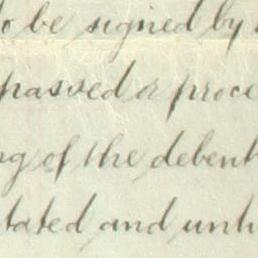 to be signed by
passed or proce
ng of the debent
tated and unti